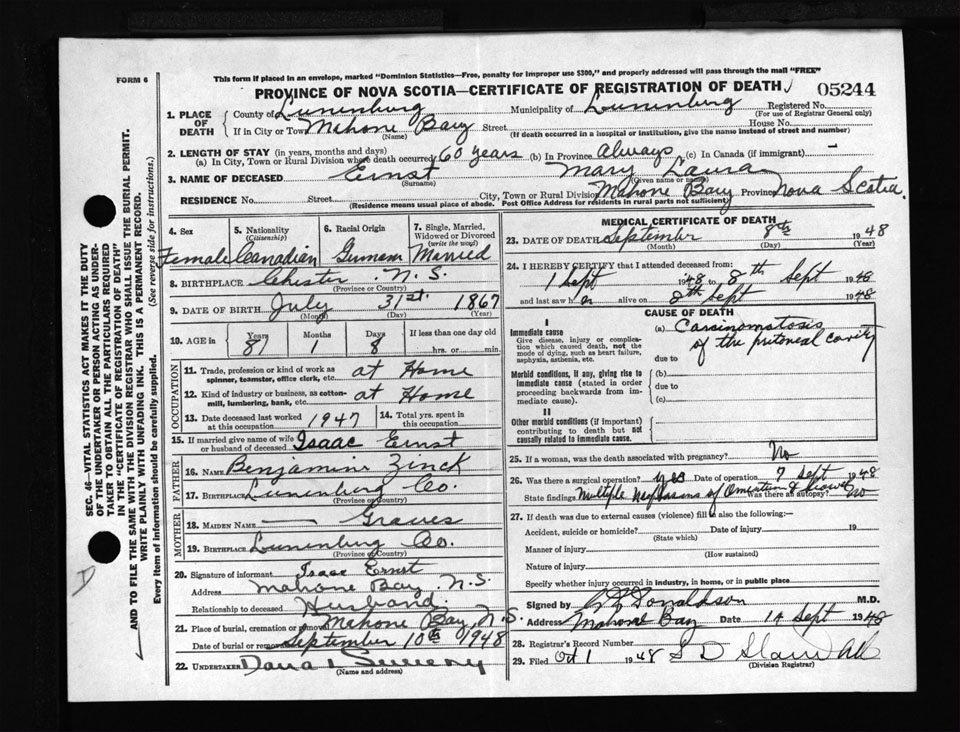 This form if placed in an envelope, marked "Dominion Statistics—Free, penalty for improper use $300," and properly addressed will pass through the mail "FREE"
FORM 6
PROVINCE OF NOVA SCOTIA—CERTIFICATE OF REGISTRATION OF DEATH 05244
1. PLACE OF DEATH { County of Lunenburg Municipality of Lunenburg Registered No.
(For use of Registrar General only)
If in City or Town Mahone Bay Street House No.
(Name) (If death occurred in a hospital or institution, give the name instead of street and number)
2. LENGTH OF STAY (in years, months and days)
(a) In City, Town or Rural Division where death occurred 60 years (b) In Province always (c) In Canada (if immigrant)
3. NAME OF DECEASED Ernst Mary Laura
(Surname) (Given name or names)
RESIDENCE No. Street City, Town or Rural Division Mahone Bay Province Nova Scotia
(Residence means usual place of abode. Post Office Address for residents in rural parts not sufficient)
4. Sex 5. Nationality (Citizenship) 6. Racial Origin 7. Single, Married, Widowed or Divorced (write the word)
Female Canadian German Married
8. BIRTHPLACE Chester N.S.
(Province or Country)
9. DATE OF BIRTH July 31st. 1867
(Month) (Day) (Year)
10. AGE in { Years Months Days If less than one day old
81 1 8 hrs. or min.
OCCUPATION
11. Trade, profession or kind of work as spinner, teamster, office clerk, etc. at Home
12. Kind of industry or business, as cotton-mill, lumbering, bank, etc. at Home
13. Date deceased last worked at this occupation 1947 14. Total yrs. spent in this occupation
15. If married give name of wife or husband of deceased Isaac Ernst
FATHER
16. NAME Benjamin Zinck
17. BIRTHPLACE Lunenburg Co.
(Province or Country)
MOTHER
18. MAIDEN NAME — Graves
19. BIRTHPLACE Lunenburg Co.
(Province or Country)
20. Signature of informant Isaac Ernst
Address Mahone Bay, N.S.
Relationship to deceased Husband.
21. Place of burial, cremation or removal Mahone Bay, N.S.
Date of burial or removal September 10th 1948
22. UNDERTAKER
(Name and address)
MEDICAL CERTIFICATE OF DEATH
23. DATE OF DEATH September 8th 1948
(Month) (Day) (Year)
24. I HEREBY CERTIFY that I attended deceased from:
1 Sept 1948 to 8th Sept 1948
and last saw her alive on 8th Sept 1948
CAUSE OF DEATH
I
Immediate cause
Give disease, injury or complication which caused death, not the mode of dying, such as heart failure, asphyxia, asthenia, etc.
(a) Carsinomatosis of the pritoneal cavity
due to
Morbid conditions, if any, giving rise to immediate cause (stated in order proceeding backwards from immediate cause).
(b)
due to
(c)
II
Other morbid conditions (if important) contributing to death but not causally related to immediate cause.
25. If a woman, was the death associated with pregnancy? No
26. Was there a surgical operation? yes Date of operation 7 Sept 1948
State findings Multiple of & Was there an autopsy? No
27. If death was due to external causes (violence) fill in also the following:
Accident, suicide or homicide? Date of injury 19
(State which)
Manner of injury
(How sustained)
Nature of injury
Specify whether injury occurred in industry, in home, or in public place
Signed by Donaldson M.D.
Address Mahone Bay Date 14 Sept 1948
28. Registrar's Record Number
29. Filed Oct 1 1948 S D
(Division Registrar)
SEC. 46—VITAL STATISTICS ACT MAKES IT THE DUTY
OF THE UNDERTAKER OR PERSON ACTING AS UNDER-
TAKER TO OBTAIN ALL THE PARTICULARS REQUIRED
IN THE "CERTIFICATE OF REGISTRATION OF DEATH"
AND TO FILE THE SAME WITH THE DIVISION REGISTRAR WHO SHALL ISSUE THE BURIAL PERMIT.
WRITE PLAINLY WITH UNFADING INK. THIS IS A PERMANENT RECORD.
Every item of information should be carefully supplied. (See reverse side for instructions.)
D